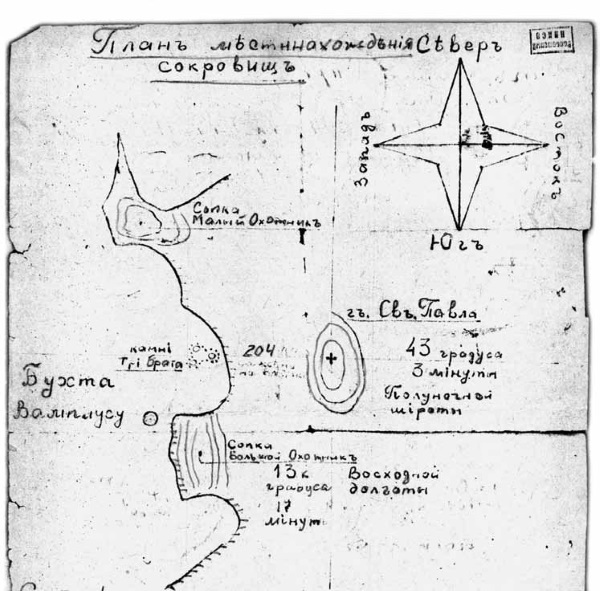 Планъ мѣстннахождѣнія
сокровищъ
Сѣверъ
Западъ
Востокъ
Югъ
Сопка
Малый Охотникъ
гъ. Свъ. Павла
камні
трі брата
204
43 градуса
3 мінуты
Полуночной
шіроты
Бухта
Вамплусу
Сопка
Большой Охотникъ
13к
градуса
17
мінут
Восходной
долготы